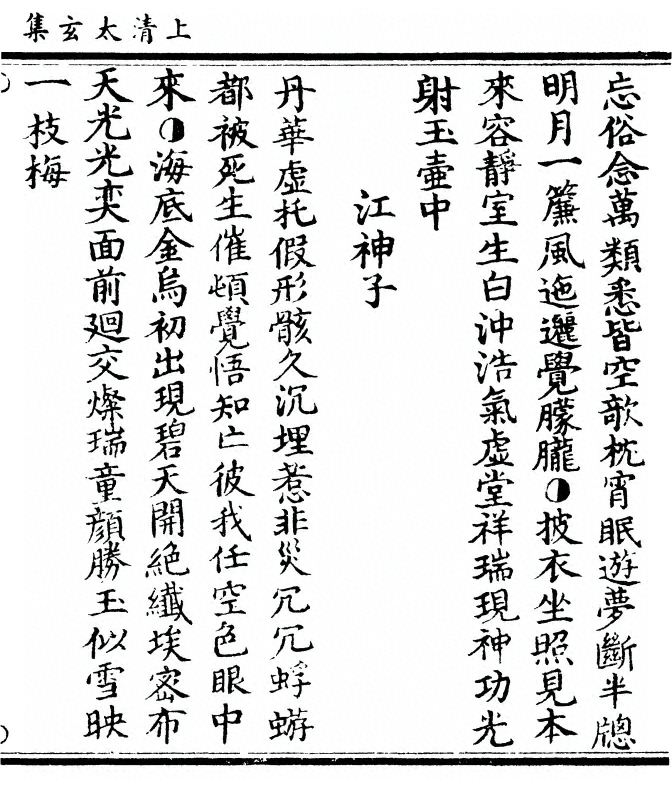 上清太玄集
忘俗念萬類悉皆空欹枕宵眠遊夢斷半牕
明月一簾風迤邐覺朦朧◑披衣坐照見本
來容靜室生白沖浩氣虛堂祥瑞現神功光
射玉壷中
江神子
丹華虛托假形骸久沉埋惹非災冗冗蜉蝣
都被死生催頓覺悟知亡彼我任空色眼中
來◑海底金烏初出現碧天開絕纖埃密布
天光光奕面前廻交燦瑞童顏勝玉似雪映
一枝梅